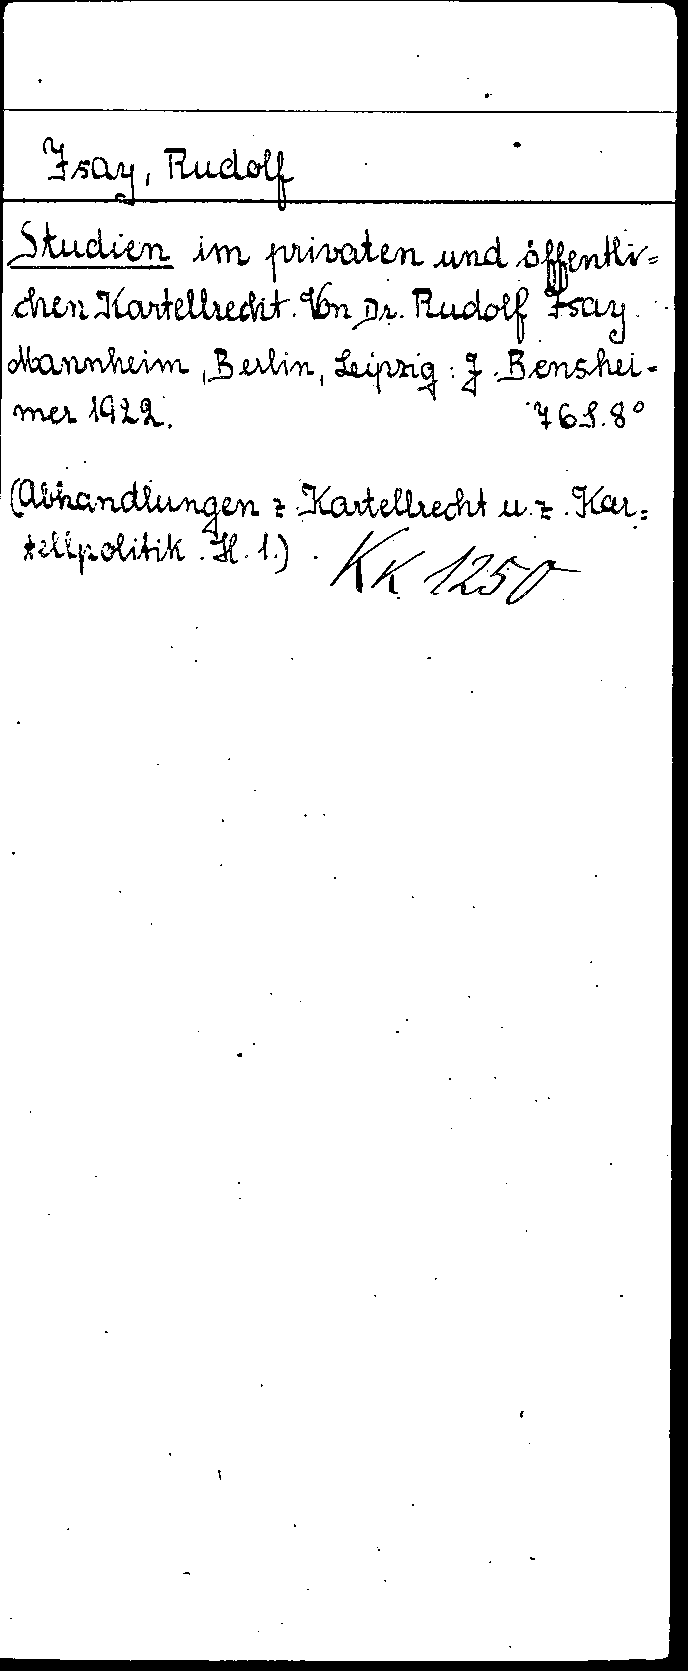 Isay, Rudolf
Studien im privaten und öffentli=
chen Kartellrecht. Von Dr. Rudolf Isay.
Mannheim, Berlin, Leipzig: J. Benshei=
mer 1922. 76 S. 8°
(Abhandlungen z. Kartellrecht u. z. Kar=
tellpolitik. H. 1.)
KK 1250